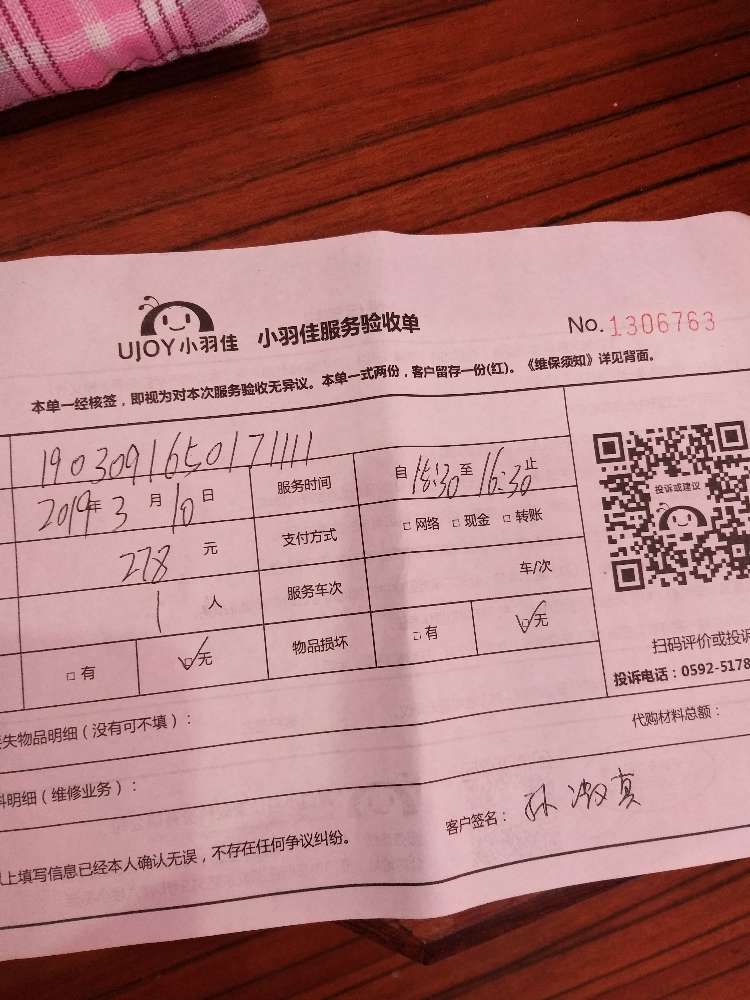 UJOY小羽佳 小羽佳服务验收单 No.1306763
本单一经核签，即视为对本次服务验收无异议。本单一式两份，客户留存一份(红)。《维保须知》详见背面。
1903091650171111
2019年3月10日 服务时间 自15:30至16:30止
278元 支付方式 □网络 □现金 □转账
1人 服务车次 车/次
□有 ☑无 物品损坏 □有 ☑无
投诉或建议
扫码评价或投诉
投诉电话：0592-5178
失物品明细（没有可不填）：
代购材料总额：
料明细（维修业务）：
上填写信息已经本人确认无误，不存在任何争议纠纷。
客户签名：孙淑真